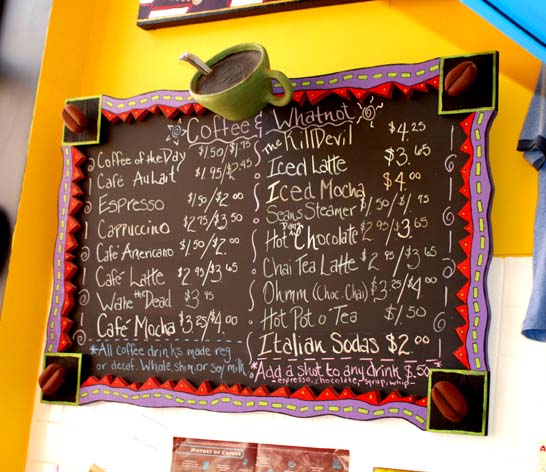 Coffee & Whatnot
Coffee of the Day $1.50/$1.75
Café Au Lait $1.95/$2.45
Espresso $1.50/$2.00
Cappuccino $2.75/$3.50
Café Americano $1.50/$2.00
Café Latte $2.95/$3.65
Wake the Dead $3.95
Café Mocha $3.25/$4.00
*All coffee drinks made reg
or decaf. Whole, skim, or soy milk
The KillDevil $4.25
Iced Latte $3.65
Iced Mocha $4.00
Sean's Steamer $1.50/$1.75
Hot Chocolate $2.95/$3.65
Chai Tea Latte $2.95/$3.65
Ohmm (Choc. Chai) $3.25/$4.00
Hot Pot o' Tea $1.50
Italian Sodas $2.00
*Add a shot to any drink $.50*
espresso, chocolate, syrup, whip
History of Coffee